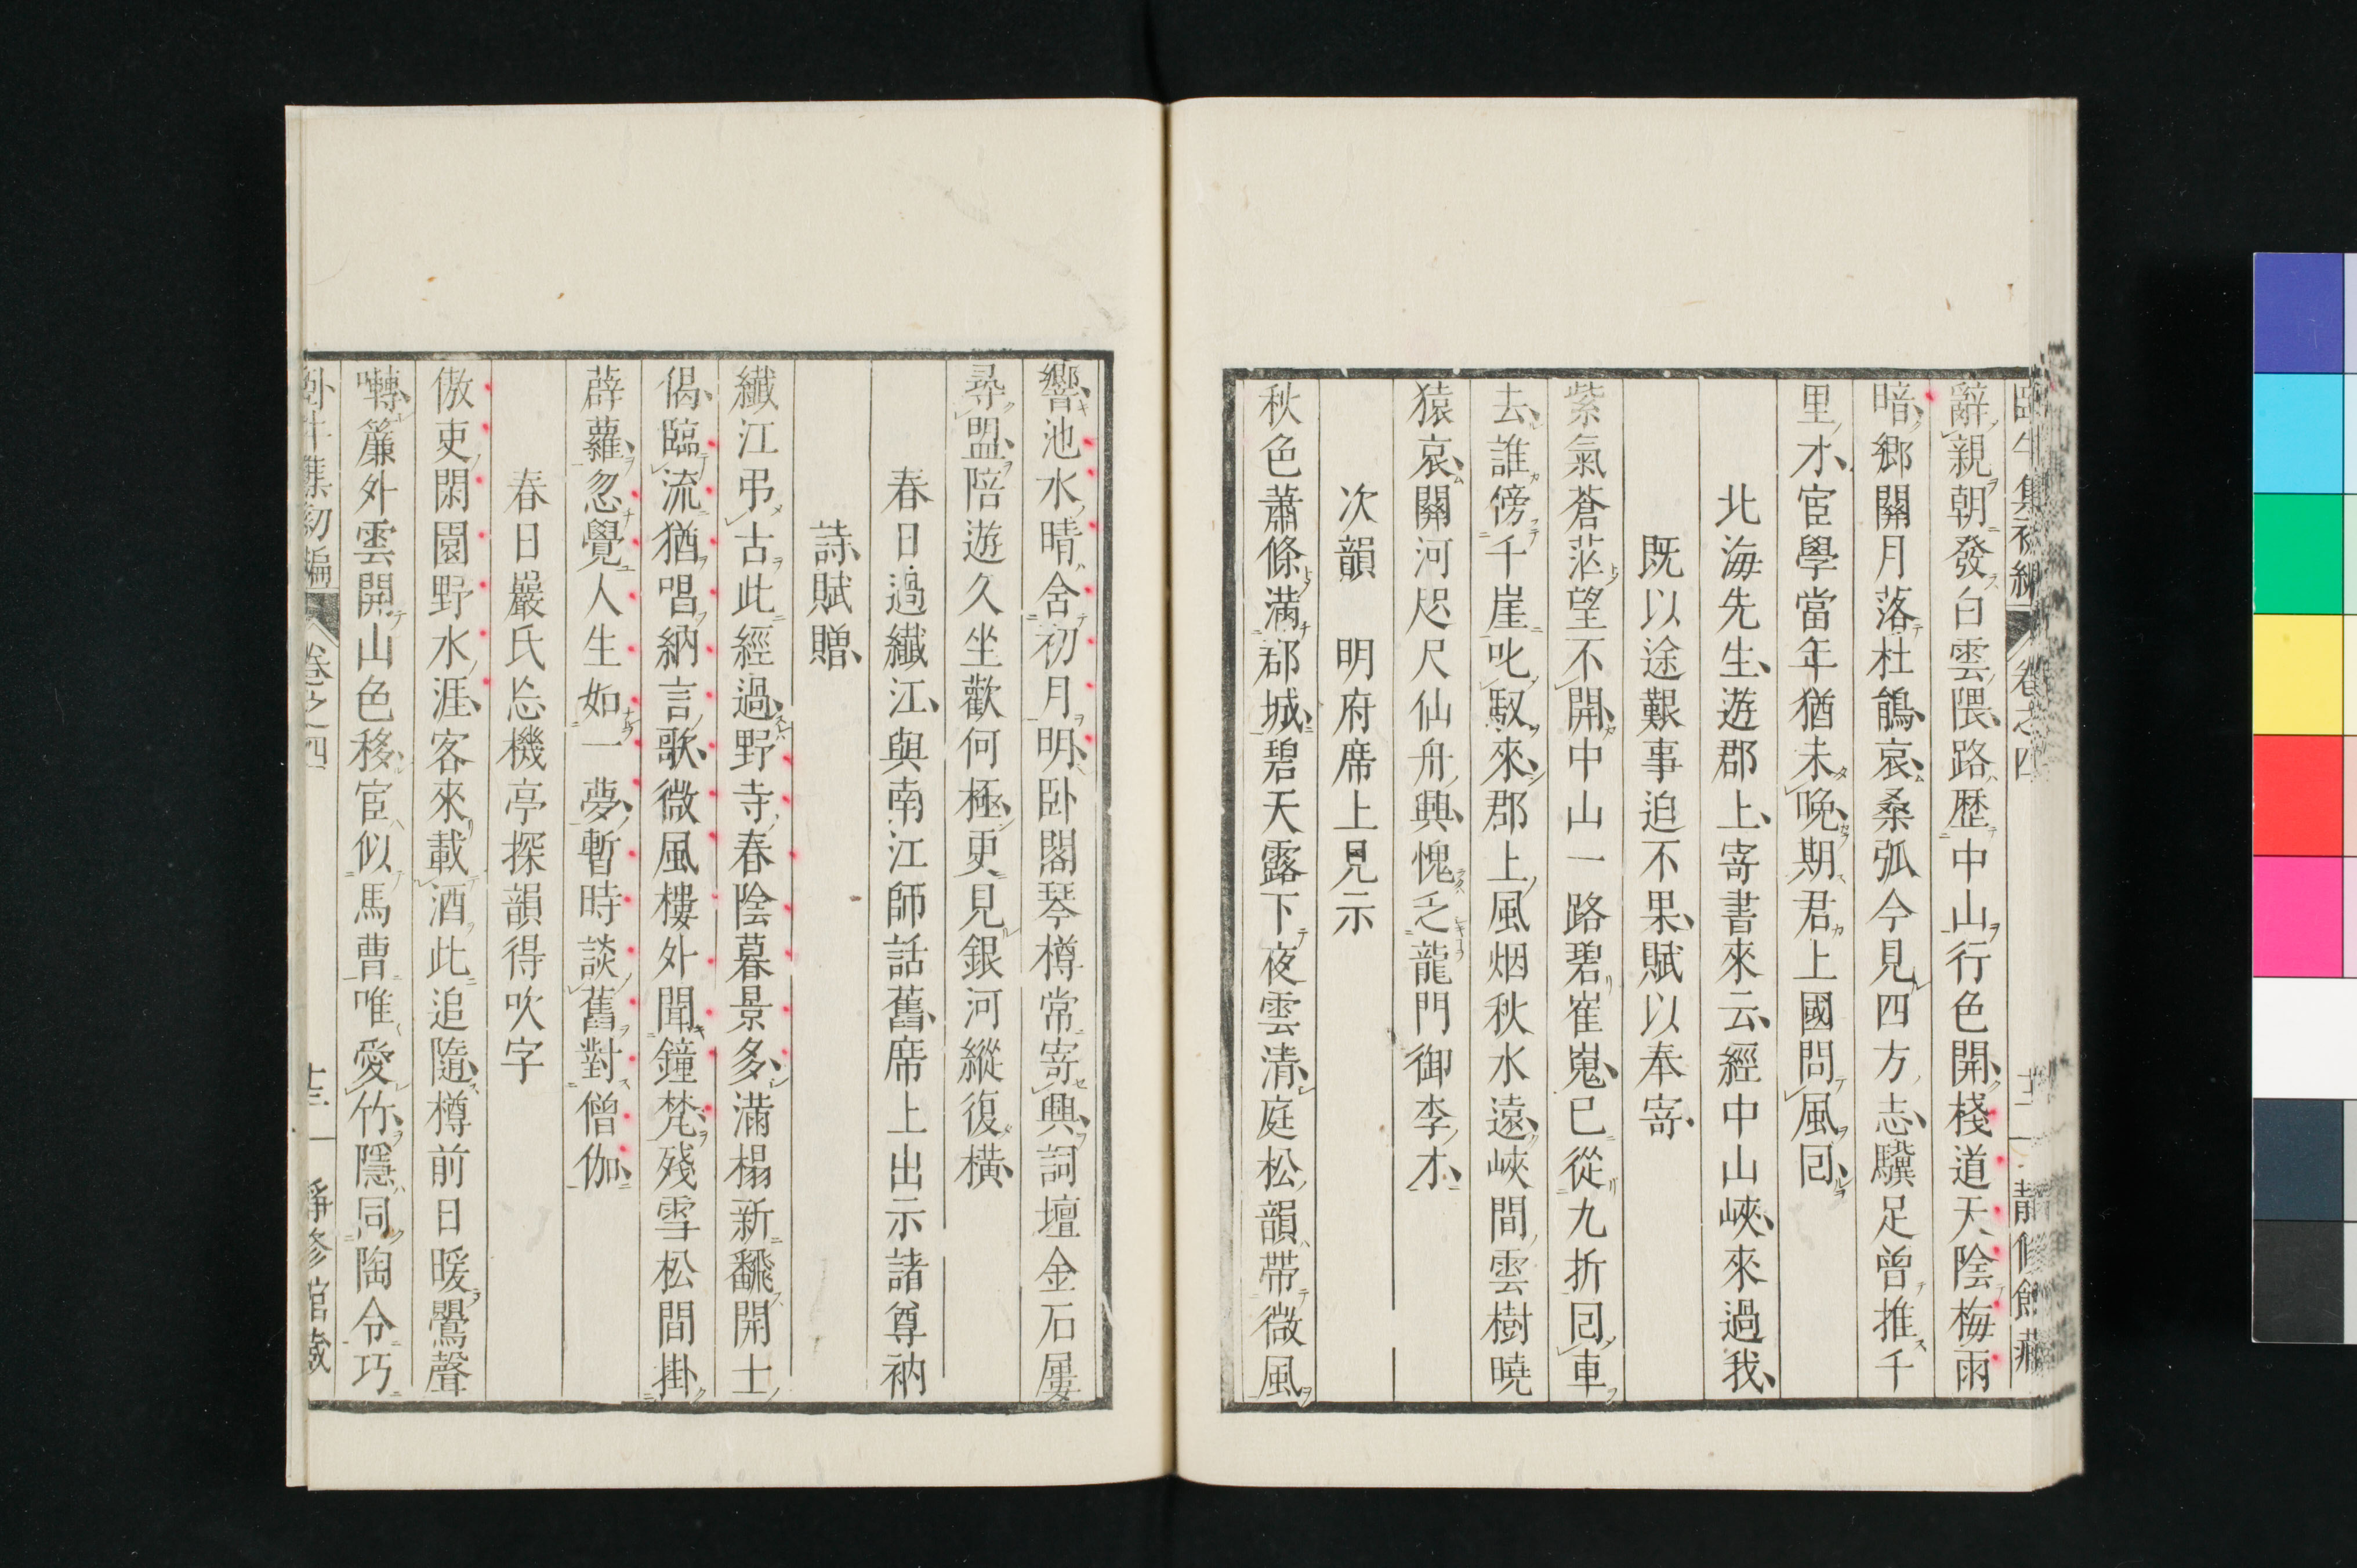 辭親朝發白雲隈路歷中山行色開棧道天陰梅雨
暗鄉關月落杜鵑哀桑弧今見四方志驥足曾推千
里才宦學當年猶未晚期君上國問風回
北海先生遊郡上寄書來云經中山峽來過我
既以途艱事迫不果賦以奉寄
紫氣蒼茫望不開中山一路碧崔嵬已從九折回車
去誰傍千崖叱馭來郡上風烟秋水遠峽間雲樹曉
猿哀關河咫尺仙舟興愧乏龍門御李才
次韻　明府席上見示
秋色蕭條滿郡城碧天露下夜雲清庭松韻帶微風
響池水晴含初月明卧閣琴樽常寄興詞壇金石屢
尋盟陪遊久坐歡何極更見銀河縱復橫
春日過纖江與南江師話舊席上出示諸尊衲
詩賦贈
纖江弔古此經過野寺春陰暮景多滿榻新飜開士
偈臨流猶唱納言歌微風樓外聞鐘梵殘雪松間掛
薜蘿忽覺人生如一夢暫時談舊對僧伽
春日巖氏忘機亭探韻得吹字
傲吏閑園野水涯客來載酒此追隨樽前日暖鸎聲
囀簾外雲開山色移宦似馬曹唯愛竹隱同陶令巧
卷之四